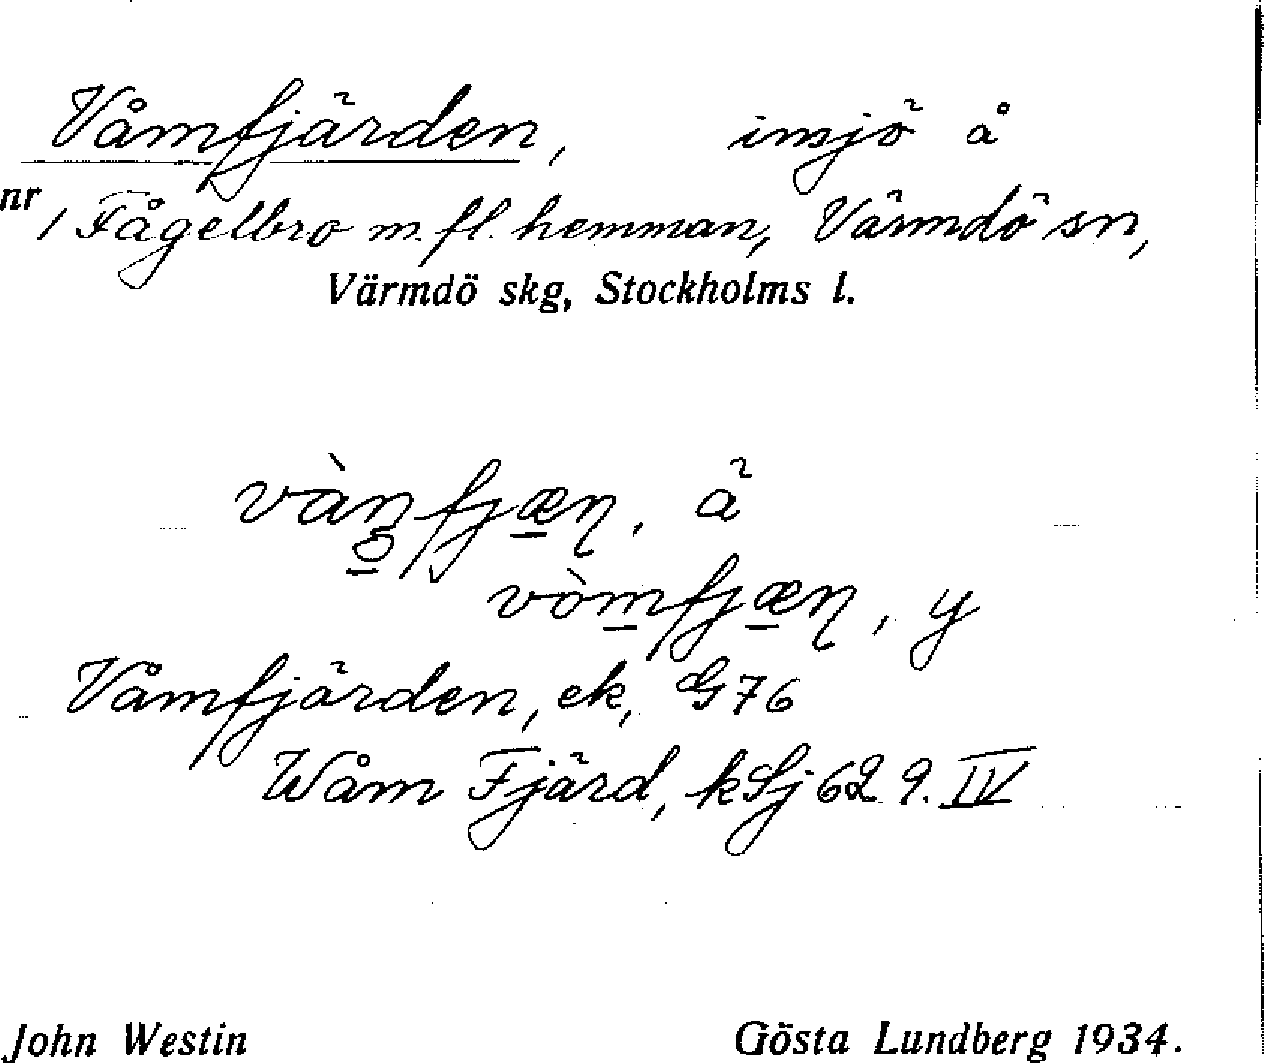 Våmfjärden, insjö å
nr 1 Fågelbro m. fl. hemman, Värmdö sn,
Värmdö skg, Stockholms l.
fjæn, ä
vòmfjæn, y
Våmfjärden, ek, G76
Wåm Fjärd, kSj 62 9. IV
John Westin Gösta Lundberg 1934.